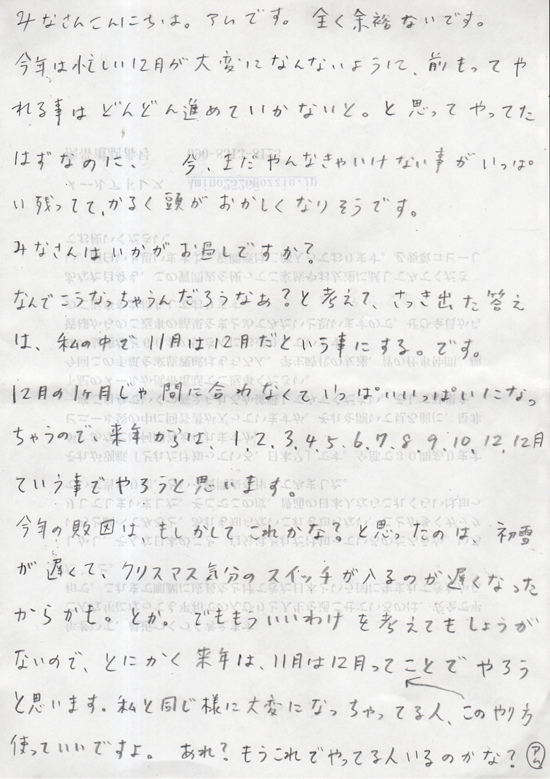 みなさんこんにちは。アムです。全く余裕ないです。
今年は忙しい12月が大変になんないように、前もってや
れる事はどんどん進めていかないと。と思ってやってた
はずなのに、今、まだやんなきゃいけない事がいっぱ
い残ってて、かるく頭がおかしくなりそうです。
みなさんはいかがお過しですか?
なんでこうなっちゃうんだろうなぁ?と考えて、さっき出た答え
は、私の中で11月は12月だという事にする。です。
12月の1ヶ月じゃ間に合わなくていっぱいいっぱいになっ
ちゃうので来年からは、1、2、3、4、5、6、7、8、9、10、12、12月
ていう事でやろうと思います。
今年の敗因は、もしかしてこれかな。と思ったのは、初雪
が遅くて、クリスマス気分のスイッチが入るのが遅くなった
からかも。とか。でももういいわけを考えてもしょうが
ないので、とにかく来年は、11月は12月ってことでやろう
と思います。私と同じ様に大変になっちゃってる人、このやり方
使っていいですよ。あれ?もうこれでやってる人いるのかな?アム